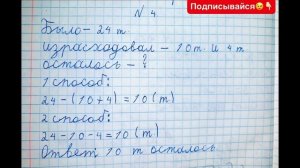 Подписывайся😉👇
№ 4.
Было – 24 т
израсходовал – 10т. и 4 т
осталось – ?
1 способ:
24-(10+4)=10(т)
2 способ:
24-10-4=10(т)
Ответ 10 т осталось